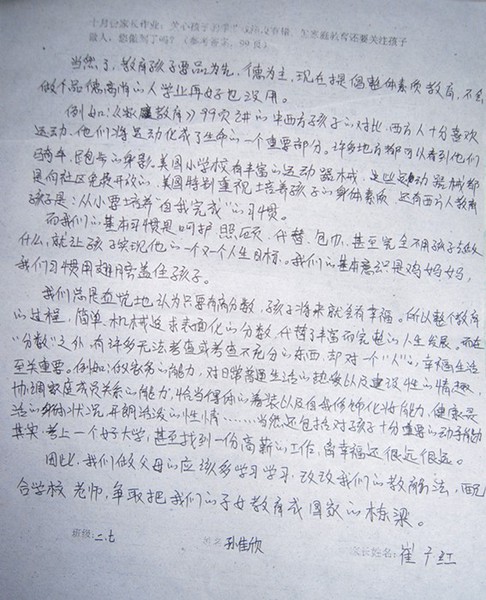 十月份家长作业：关心孩子的学习成绩没有错，在家庭教育还要关注孩子
做人，您做到了吗？（参考答案，99页）
当然了，教育孩子要品为先，德为主，现在提倡整体素质教育，不会
做个品德高尚的人学业再好也没用。
例如：《教育》99页讲的中西方孩子的对比，西方人十分喜欢
运动，他们将运动化成了生命的一个重要部分。许多地方都可以看到他们
骑车、跑步的身影，美国小学校有丰富的运动器械，这些运动器械都
是向社区免费开放的，美国特别重视培养孩子的身体素质，还有西方人教育
孩子是：从小要培养"自我完成"的习惯。
而我们的基本习惯是呵护、照顾、代替、包办，甚至完全不用孩子做
什么，就让孩子实现他的一个又一个人生目标。我们的基本意识是鸡妈妈，
我们习惯用翅膀盖住孩子。
我们总是直觉地认为只要有高分数，孩子将来就会有幸福。所以整个教育
的过程，简单、机械追求表面化的分数，代替了丰富而完整的人生发展。而在
"分数"之外，有许多无法考查或考查不充分的东西，却对一个"人"的幸福生活
至关重要。例如：做家务的能力，对日常普通生活的热爱以及建设性的情趣，
协调家庭成员关系的能力，恰当得体的着装以及自我修饰化妆能力，健康灵
活的身体状况，开朗活泼的性情……当然还包括对孩子十分重要的动手能力
其实，考上一个好大学，甚至找到一份高薪的工作，离幸福还很远很远。
因此，我们做父母的应该多学习学习，改改我们的教育方法，配
合学校老师，争取把我们的子女教育成国家的栋梁。
班级：二.七 姓名 孙佳欣 家长姓名：崔子红